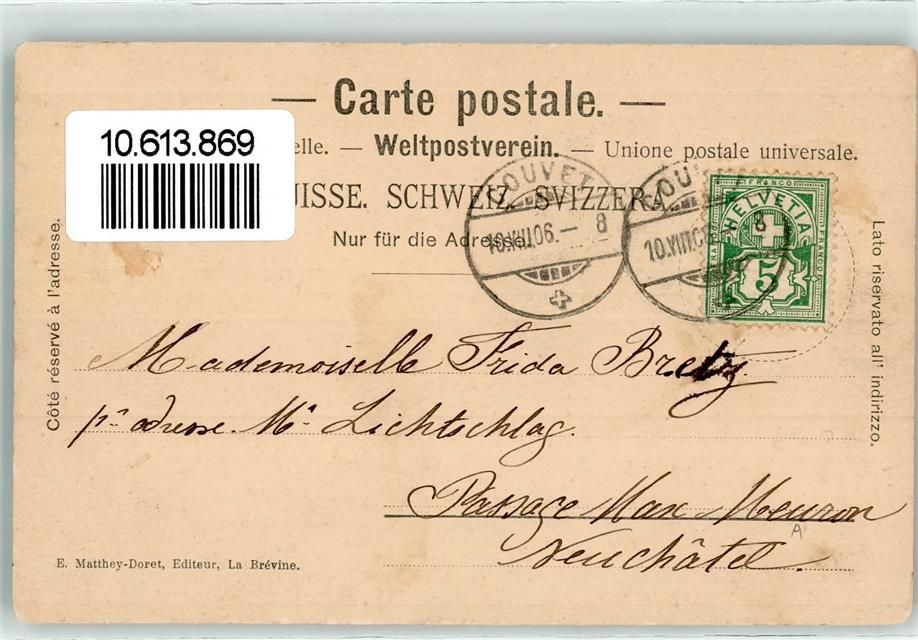 — Carte postale. —
10.613.869
elle. — Weltpostverein. — Unione postale universale.
UISSE. SCHWEIZ. SVIZZERA.
Nur für die Adresse.
COUVET
10.VII.06. — 8
COUV
10.VII.06 8
FRANCO
HELVETIA
FRANCO
5
Côté réservé à l'adresse.
Lato riservato all' indirizzo.
Mademoiselle Frida Bretz
pr adresse. Mr Lichtschlag.
Passage Max Meuron
Neuchâtel.
A
E. Matthey-Doret, Editeur, La Brévine.